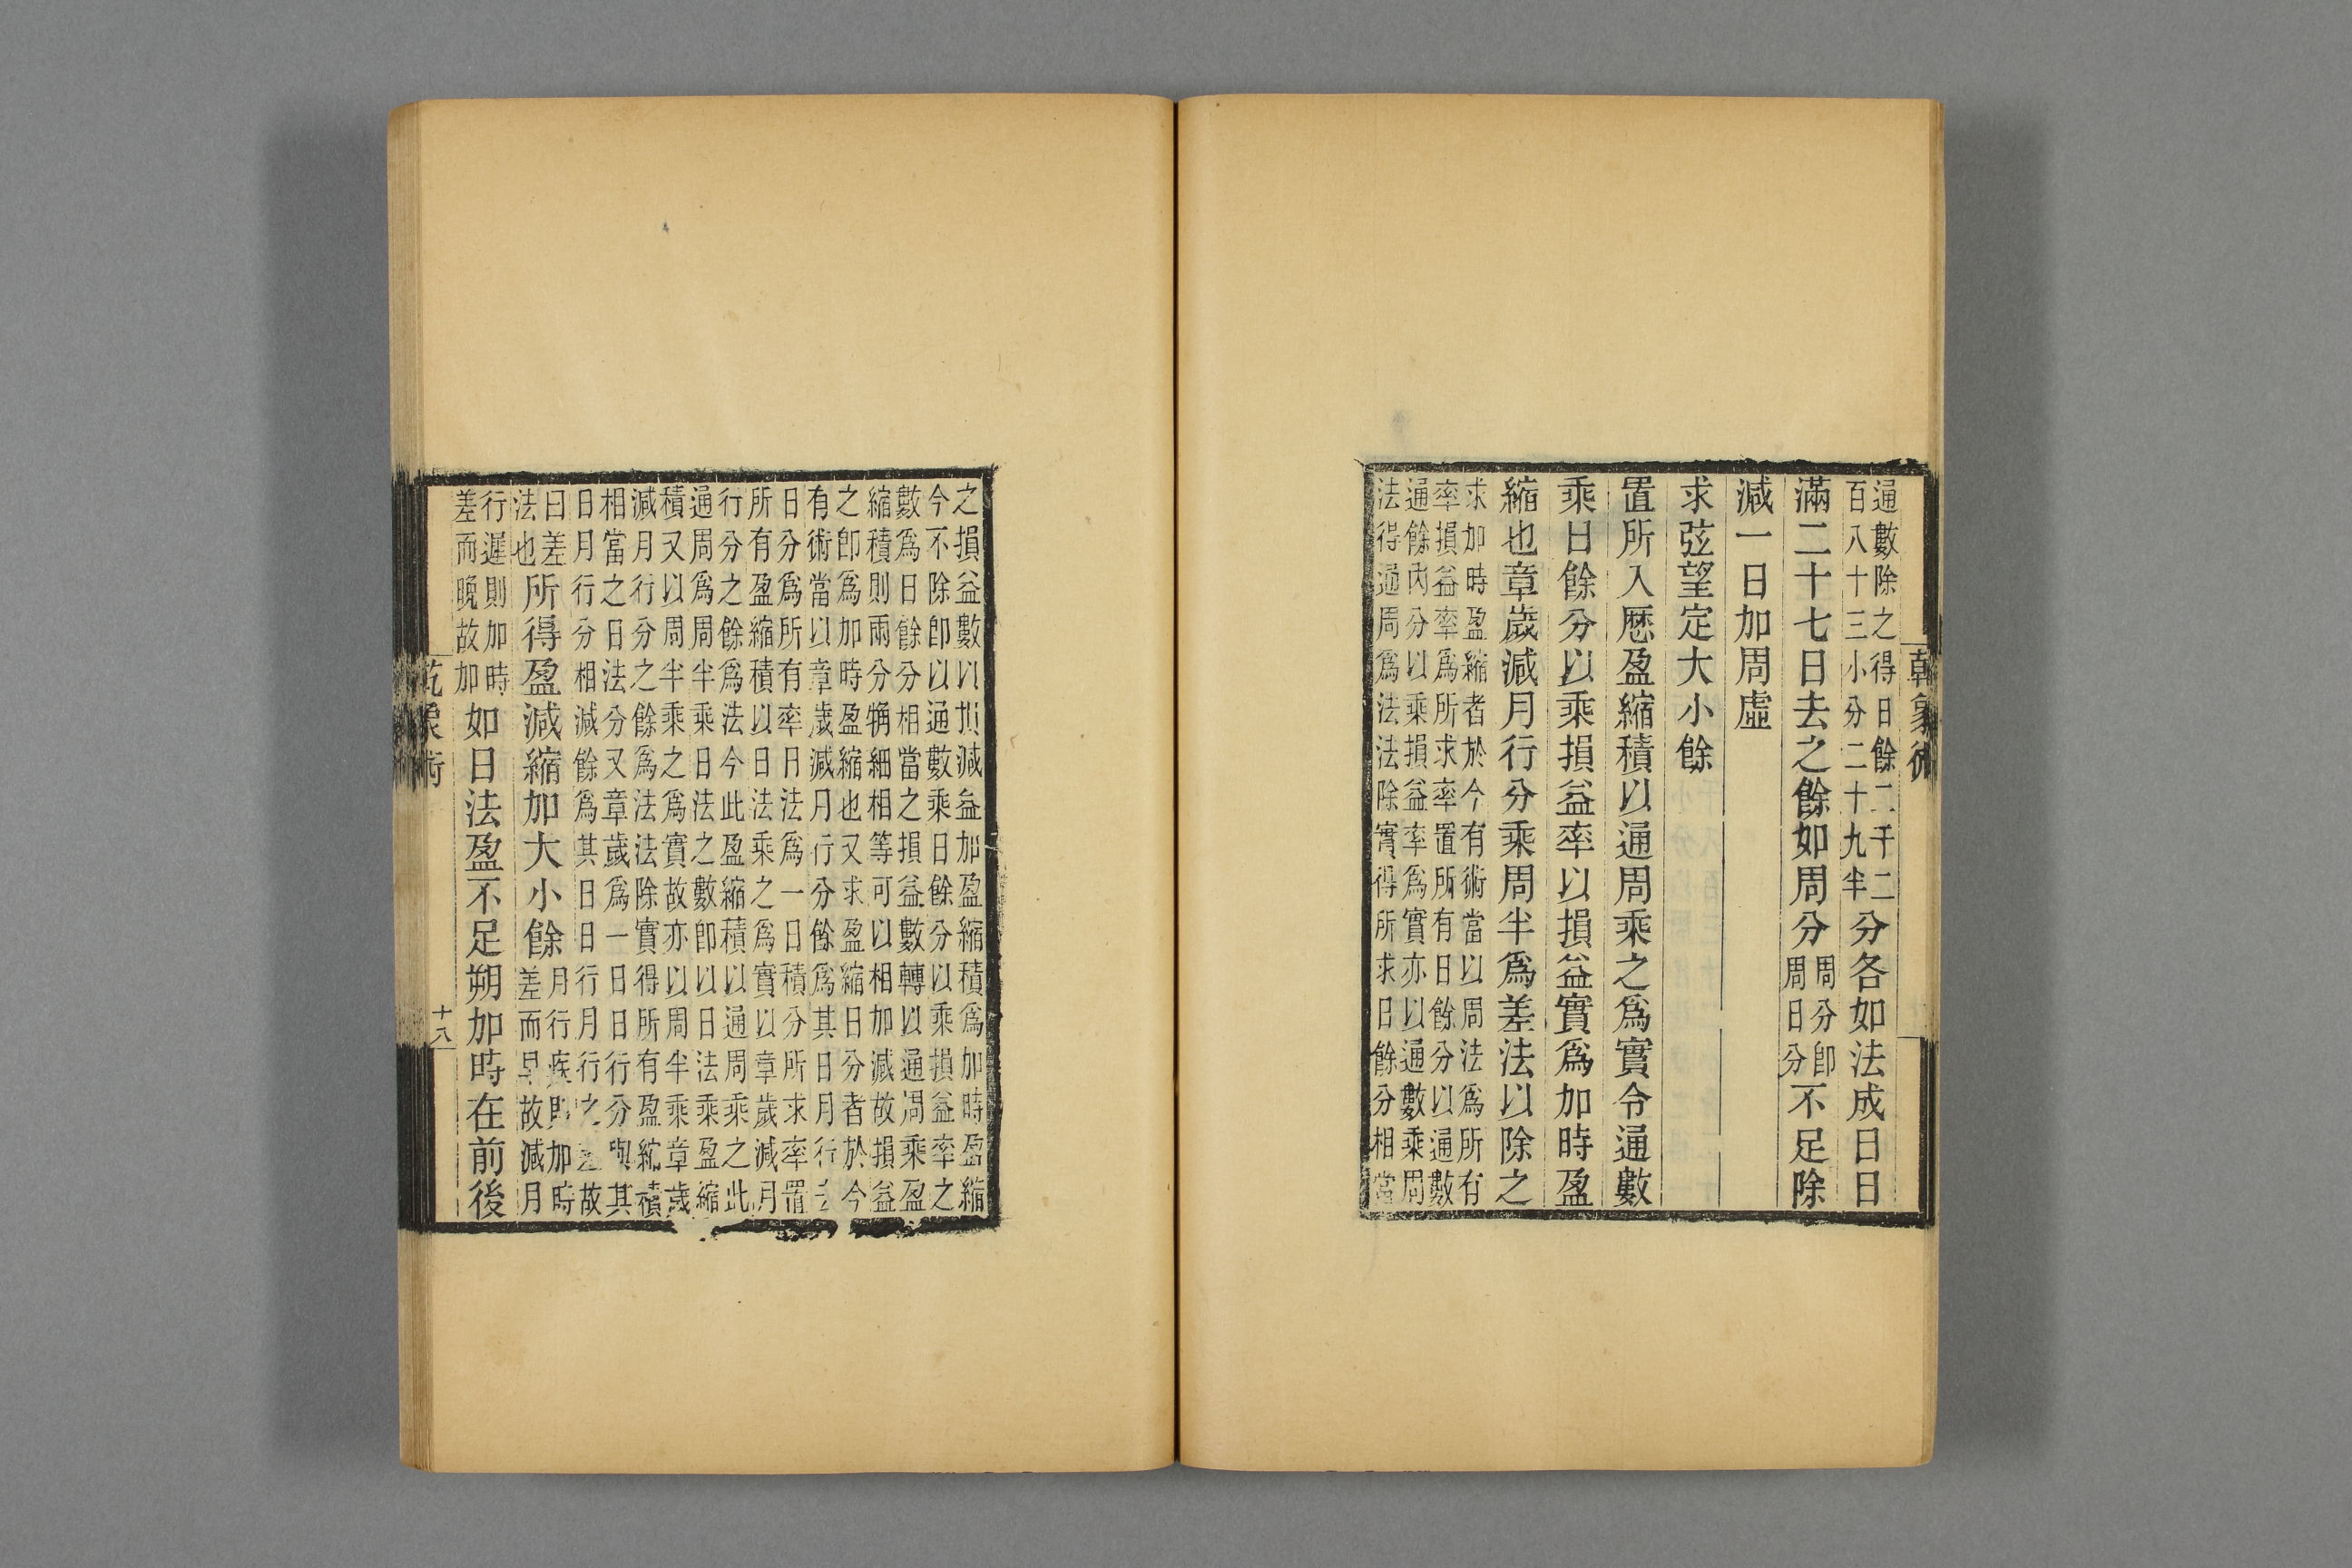 通數除之得日餘二千二
百八十三小分二十九半分各如法成日日
滿二十七日去之餘如周分周分即周日分不足除
減一日加周虛
求弦望定大小餘
置所入歷盈縮積以通周乘之為實令通數
乘日餘分以乘損益率以損益實為加時盈
縮也章歲減月行分乘周半為差法以除之
求加時盈縮者於今有術當以周法為所有
率損益率為所求率置所有日餘分以通數
通餘內分以乘損益率為實亦以通數乘周
法得通周為法法除實得所求日餘分相當
之損益數以損減益加盈縮積為加時盈縮
今不除即以通數乘日餘分以乘損益率之
數為日餘分相當之損益數轉以通周乘盈
縮積則兩分犕細相等可以相加減故損益
之即為加時盈縮也又求盈縮日分者於今
有術當以章歲減月行分餘為其日月行
日分為所有率日法為一日積分所求率置
所有盈縮積以日法乘之為實以章歲減月
行分之餘為法今此盈縮積以通周乘之此
通周為周半乘日法之數即以日法乘盈縮
積又以周半乘之為實故亦以周半乘章歲
減月行分之餘為法法除實得所有盈縮積
相當之日法分又章歲為一日日行分與其
日月行分相減餘為其日日行月行之差故
曰差
法也所得盈減縮加大小餘月行疾則加時
差而早故減月
行遲則加時
差而晚故加如日法盈不足朔加時在前後
乾象術
十八